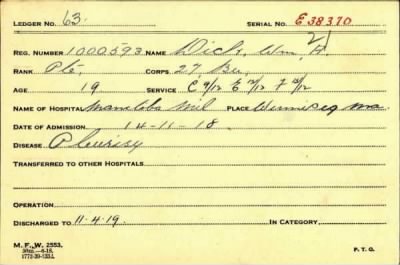 LEDGER NO. 63. SERIAL NO. E 38370
21
REG. NUMBER 1000593 NAME Dick, Wm. H.
RANK Pte. CORPS. 27 Bn.
AGE 19 SERVICE C 9/12 E 12/12 F 12/12
NAME OF HOSPITAL Manitoba Mil PLACE Winnipeg Ma.
DATE OF ADMISSION 14-11-18.
DISEASE Pleurisy
TRANSFERRED TO OTHER HOSPITALS
OPERATION
DISCHARGED TO 11.4.19. IN CATEGORY
M. F., W. 2553. P. T. O.
1772-39-1331.